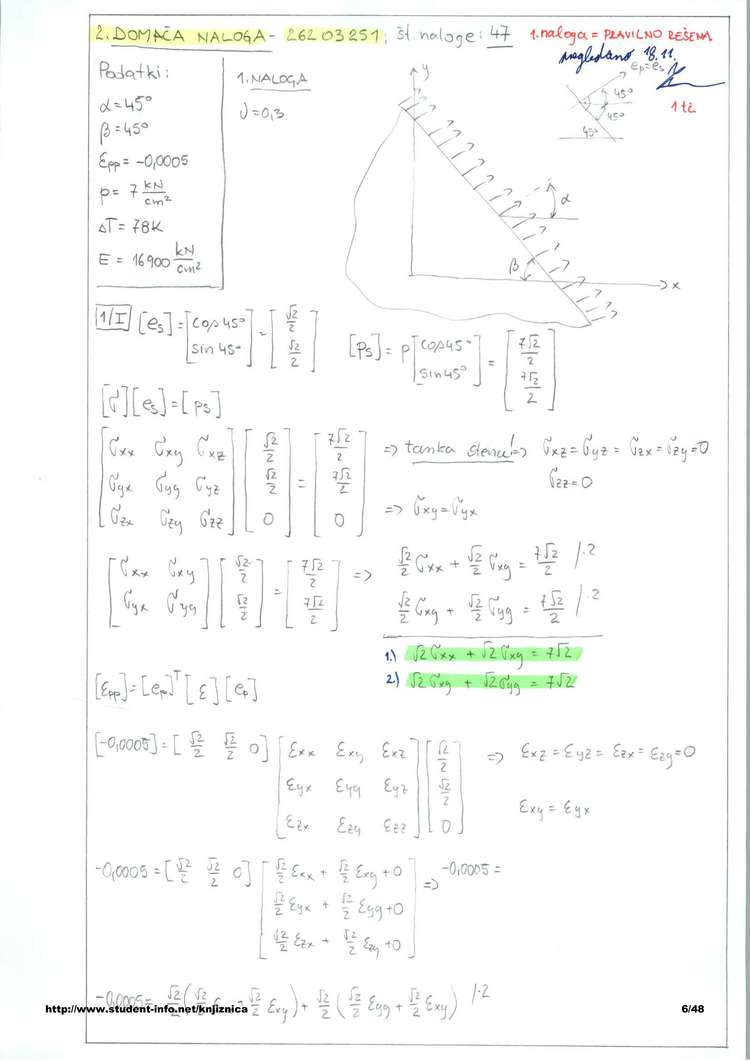 2. DOMAČA NALOGA - 26203251; št. naloge: 47
1. naloga = PRAVILNO REŠENA
pregledano 18.11.
1 tč
Podatki:
α = 45°
β = 45°
εpp = -0,0005
p = 7 kN/cm²
ΔT = 78K
E = 16900 kN/cm²
1. NALOGA
ν = 0,3
y
x
α
β
ep = es
45°
45°
45°
1/I [es] = [cos 45° sin 45°] = [√2/2 √2/2] [ps] = p [cos 45° sin 45°] = [7√2/2 7√2/2]
[σ][es] = [ps]
[σxx σxy σxz σyx σyy σyz σzx σzy σzz] [√2/2 √2/2 0] = [7√2/2 7√2/2 0] => tanka stena! => σxz = σyz = σzx = σzy = 0
σzz = 0
=> σxy = σyx
[σxx σxy σyx σyy] [√2/2 √2/2] = [7√2/2 7√2/2] => √2/2 σxx + √2/2 σxy = 7√2/2 /·2
√2/2 σxy + √2/2 σyy = 7√2/2 /·2
1.) √2 σxx + √2 σxy = 7√2
2.) √2 σxy + √2 σyy = 7√2
[εpp] = [ep]ᵀ [ε] [ep]
[-0,0005] = [√2/2 √2/2 0] [εxx εxy εxz εyx εyy εyz εzx εzy εzz] [√2/2 √2/2 0] => εxz = εyz = εzx = εzy = 0
εxy = εyx
-0,0005 = [√2/2 √2/2 0] [√2/2 εxx + √2/2 εxy + 0 √2/2 εyx + √2/2 εyy + 0 √2/2 εzx + √2/2 εzy + 0] => -0,0005 =
-0,0005 = √2/2 (√2/2 εxx + √2/2 εxy) + √2/2 (√2/2 εyy + √2/2 εxy) /·2
http://www.student-info.net/knjiznica
6/48